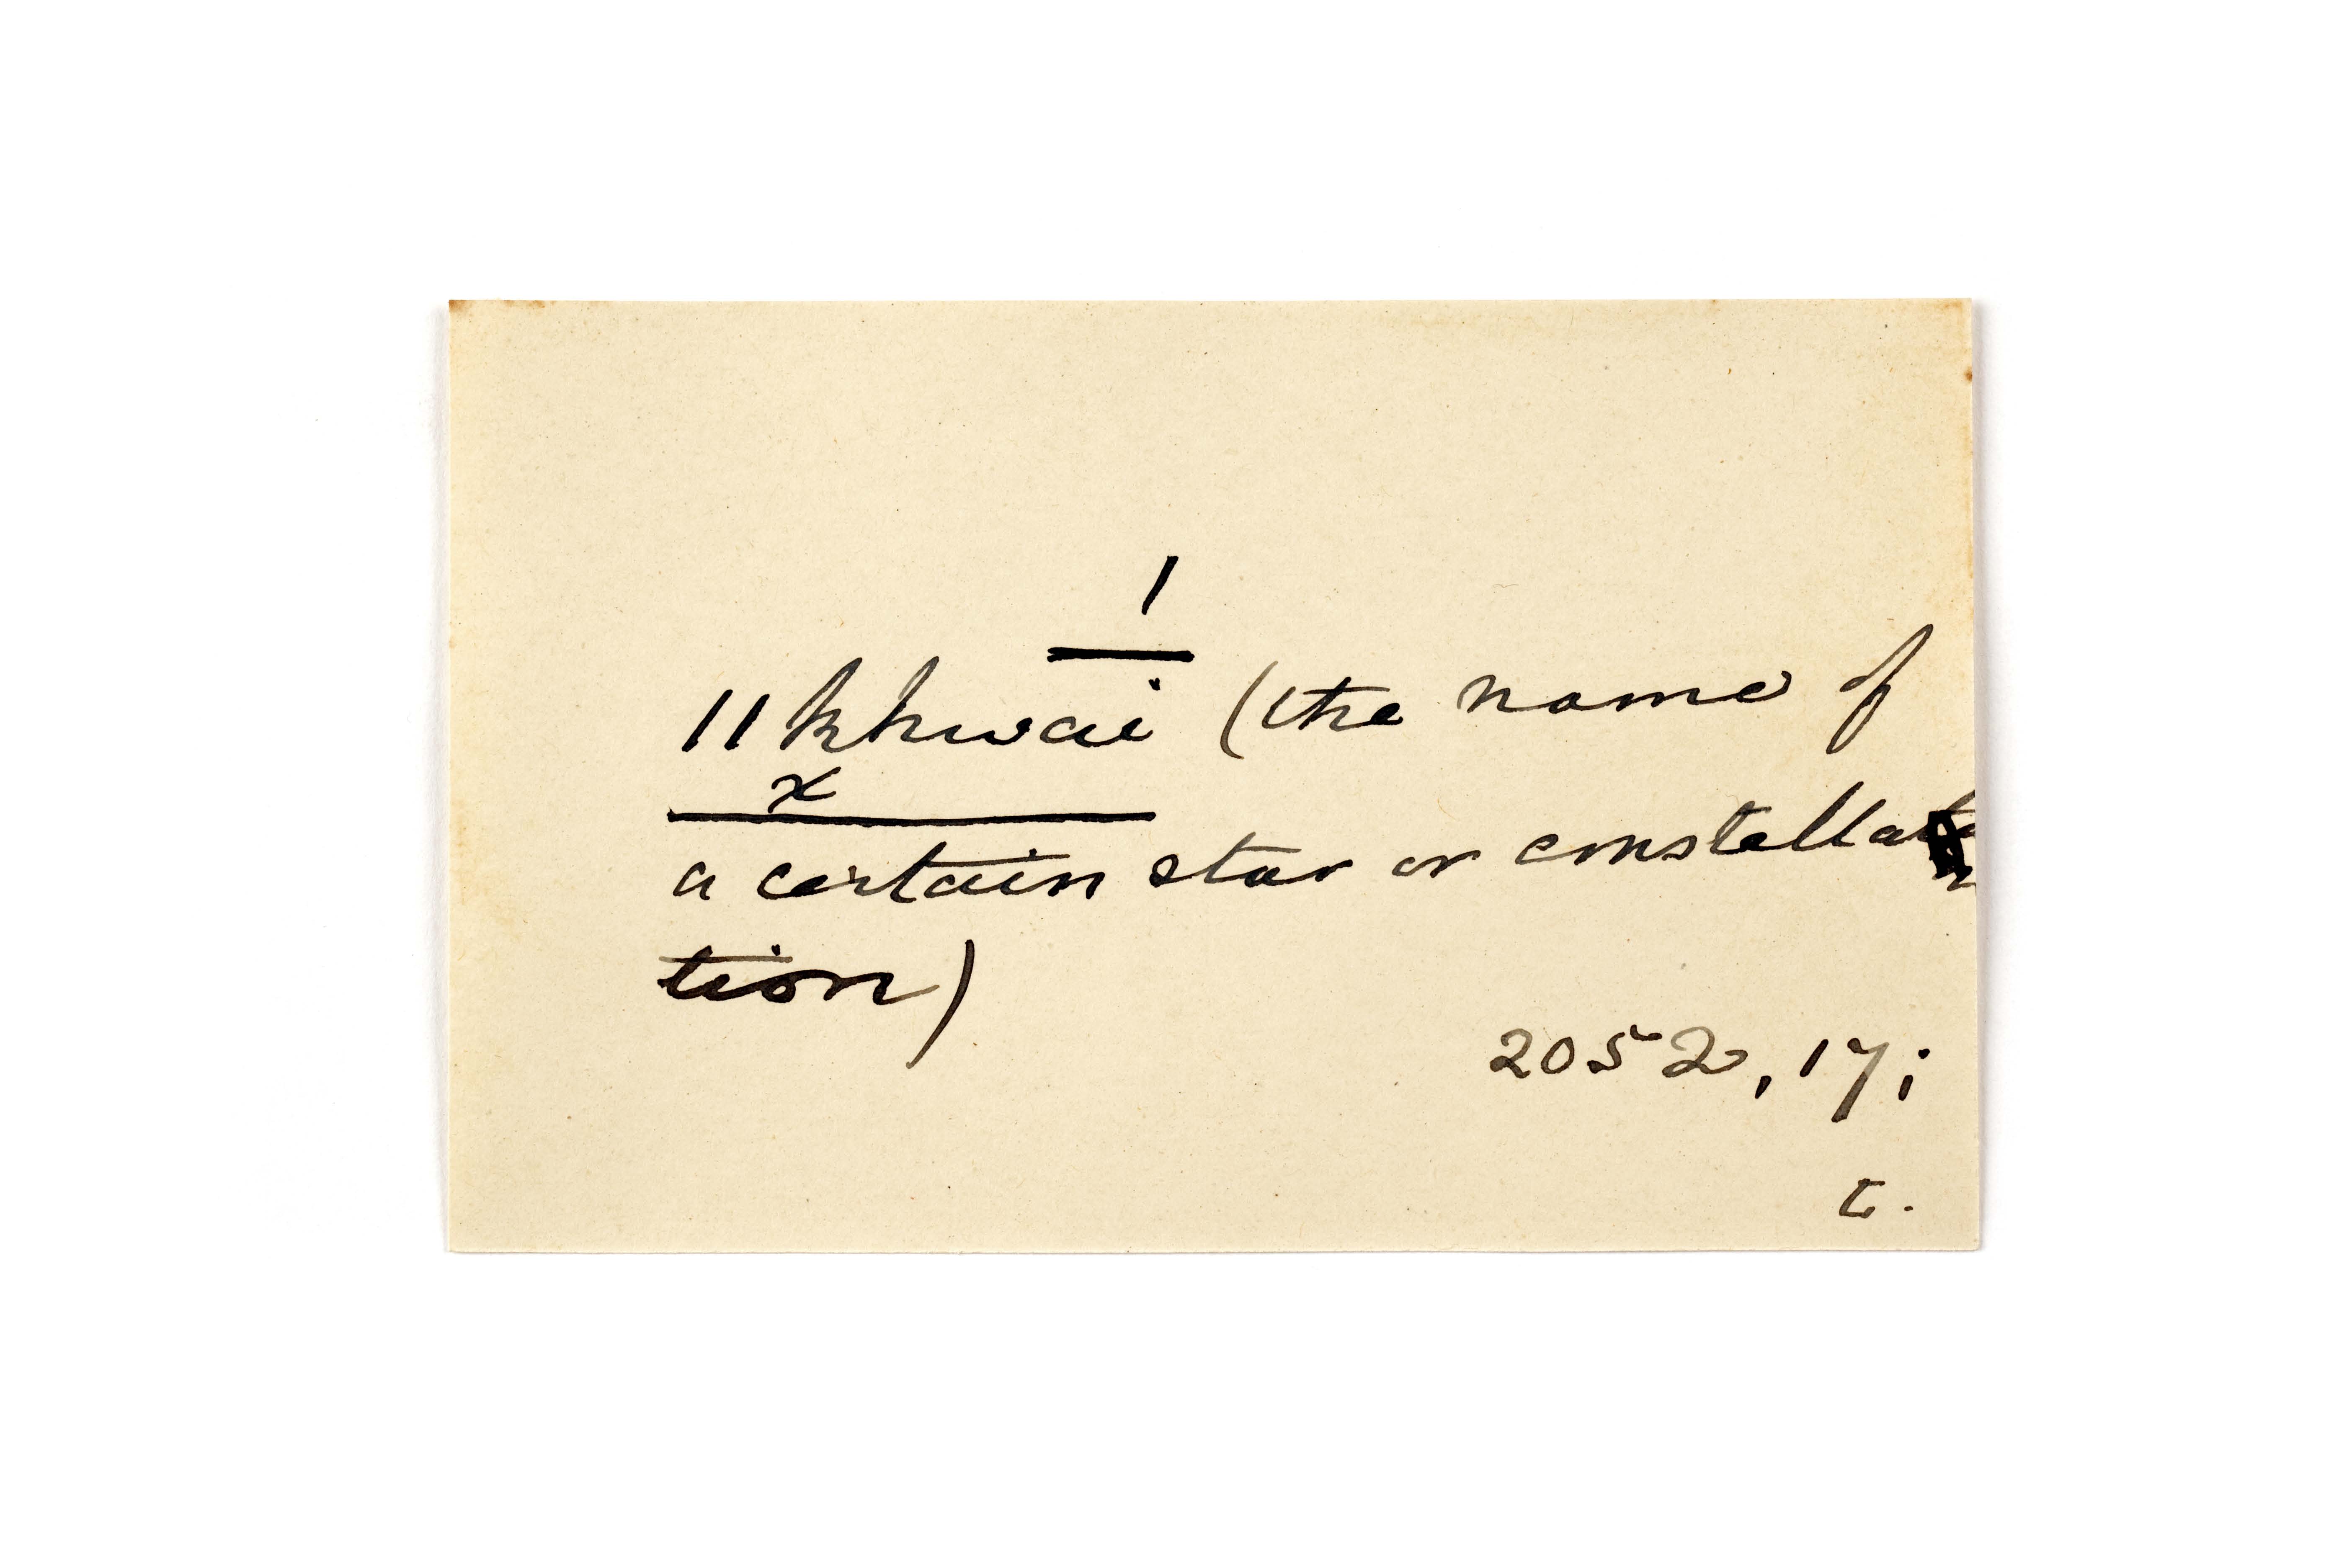 1
ǁkhwai (the name of
x
a certain star or constella
tion)
2052, 17;
t.